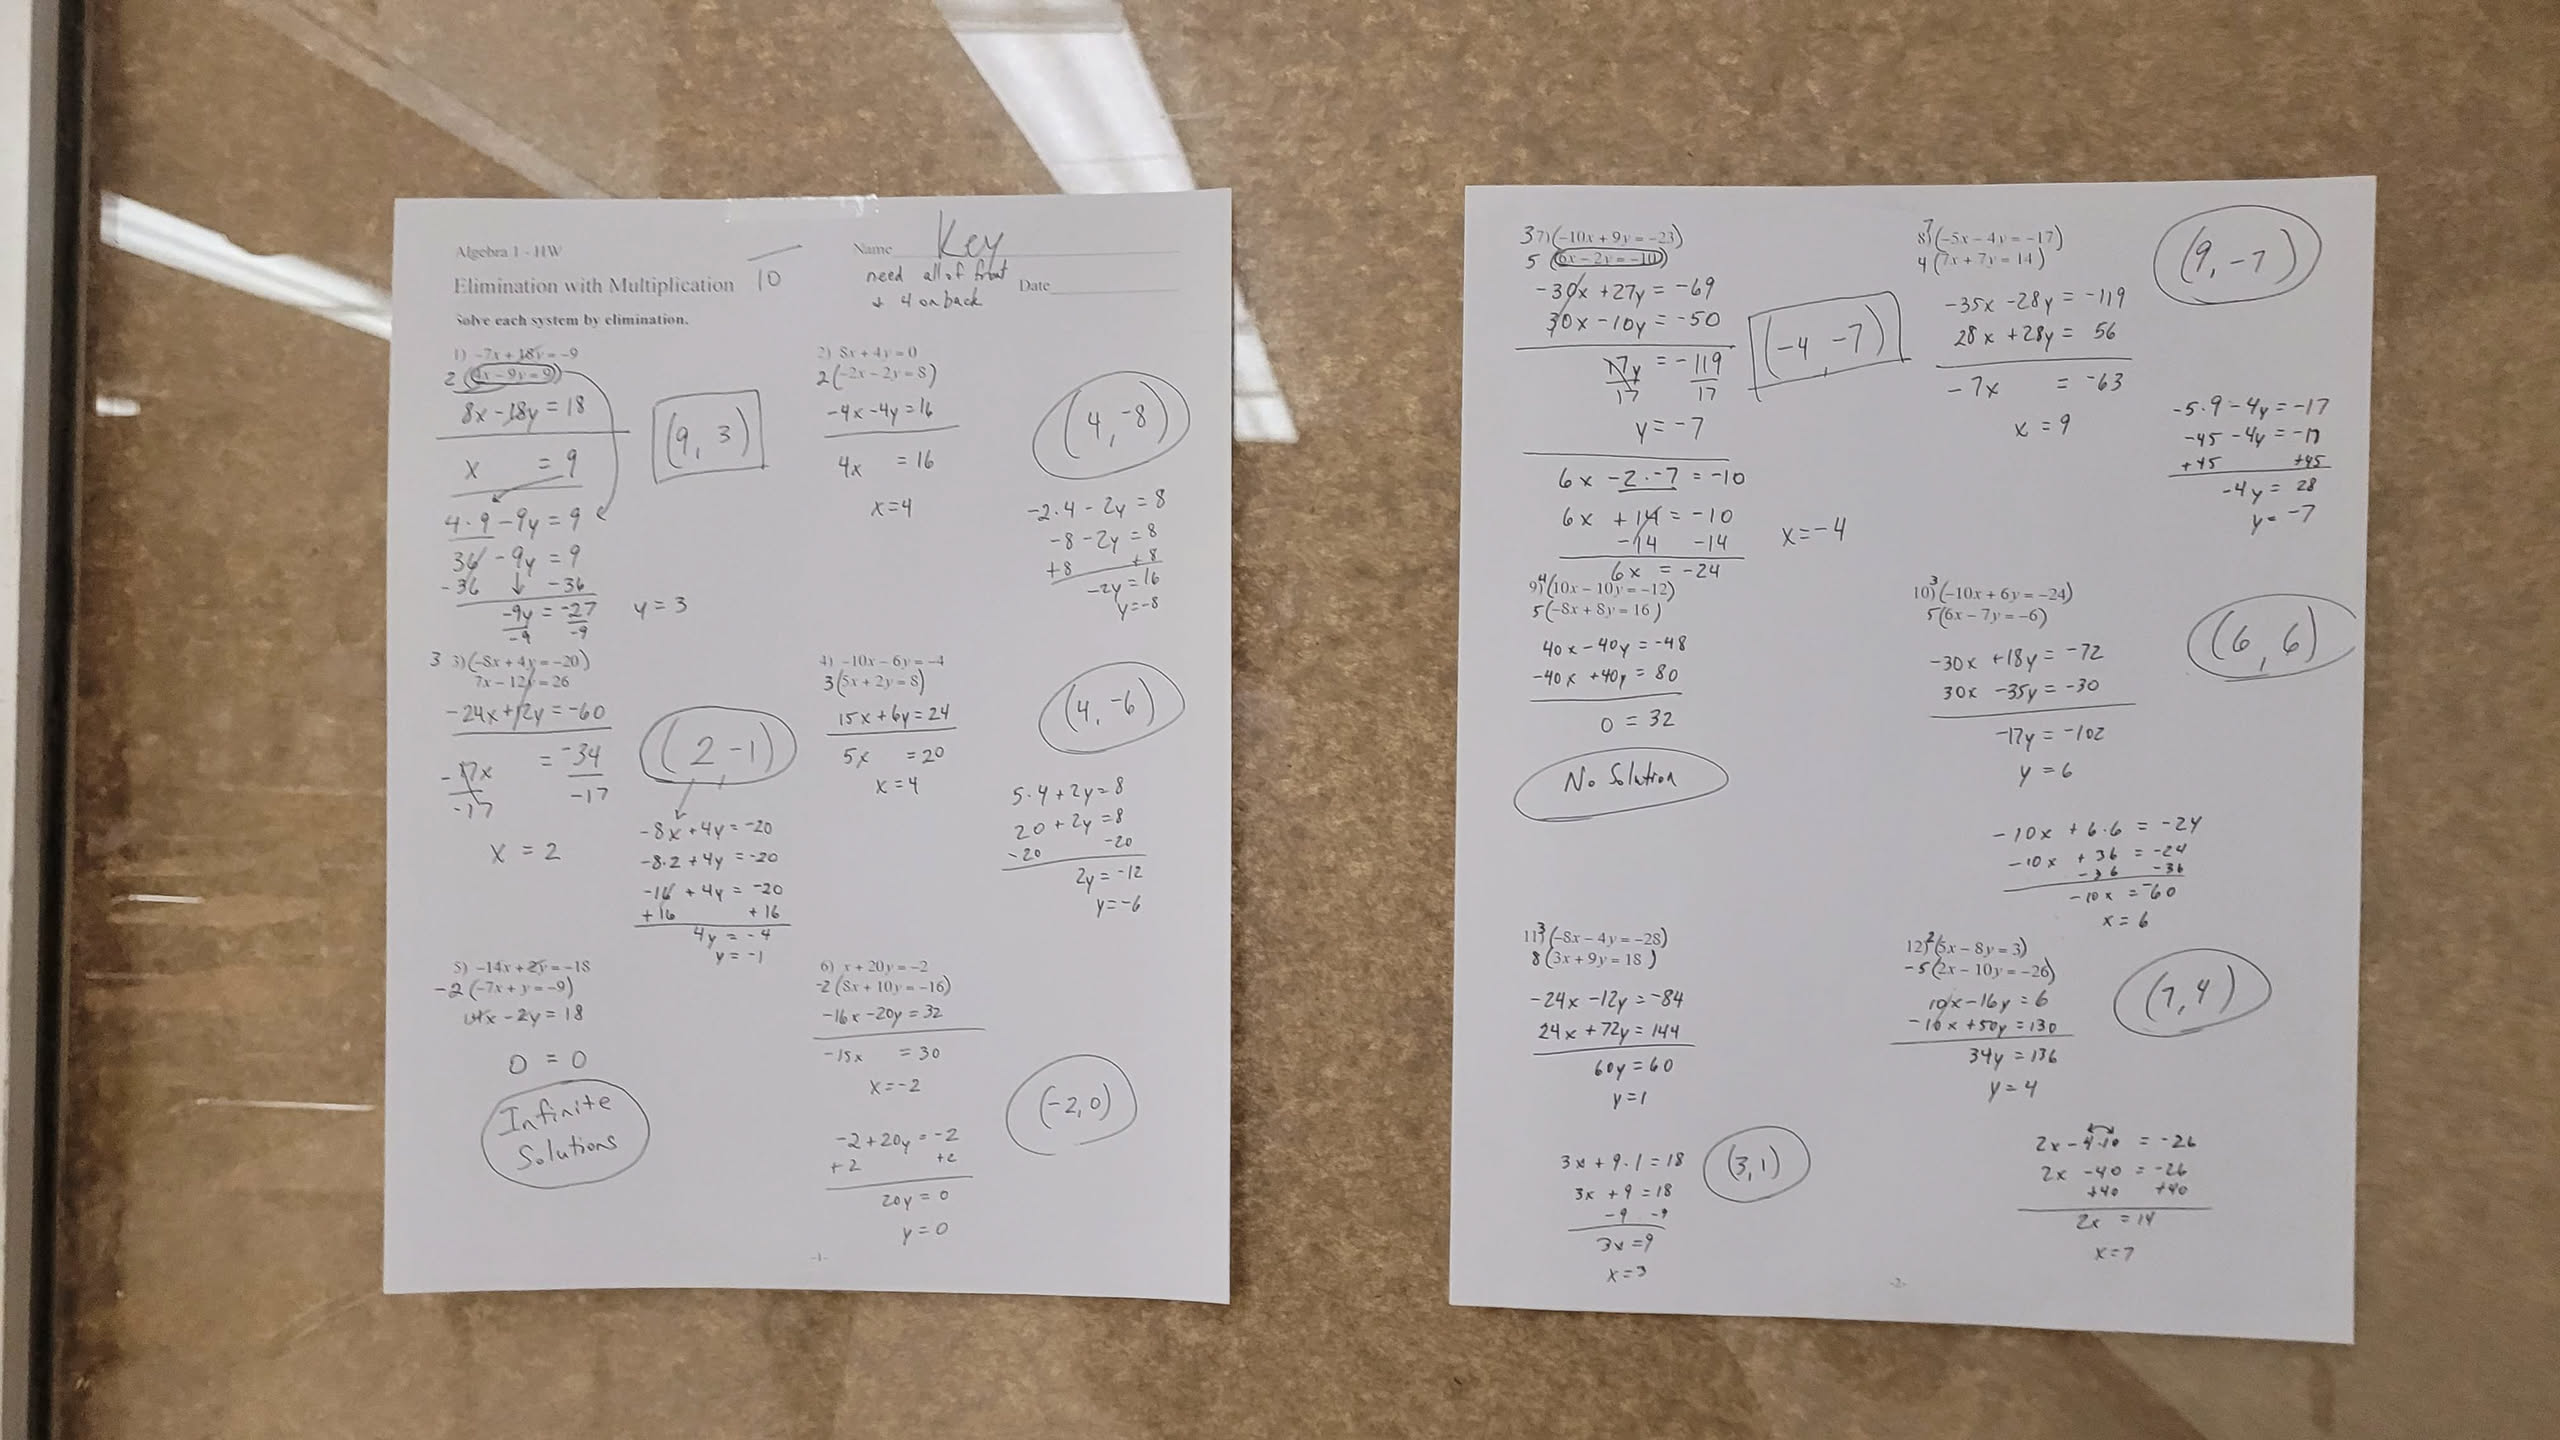 Algebra 1 - HW
Name Key
Elimination with Multiplication
10
need all of front
+ 4 on back
Date
Solve each system by elimination.
1) -7x + 18y = -9
2 (4x - 9y = 9)
8x - 18y = 18
x = 9
4 · 9 - 9y = 9
36 - 9y = 9
-36 ↓ -36
-9y = -27
-9 -9
y = 3
(9, 3)
2) 8x + 4y = 0
2 (-2x - 2y = 8)
-4x - 4y = 16
4x = 16
x = 4
(4, -8)
-2 · 4 - 2y = 8
-8 - 2y = 8
+8 +8
-2y = 16
y = -8
3 3) (-8x + 4y = -20)
7x - 12y = 26
-24x + 12y = -60
-17x = -34
-17 -17
x = 2
(2, -1)
-8x + 4y = -20
-8·2 + 4y = -20
-16 + 4y = -20
+16 +16
4y = -4
y = -1
4) -10x - 6y = -4
3 (5x + 2y = 8)
15x + 6y = 24
5x = 20
x = 4
(4, -6)
5 · 4 + 2y = 8
20 + 2y = 8
-20 -20
2y = -12
y = -6
5) -14x + 2y = -18
-2 (-7x + y = -9)
14x - 2y = 18
0 = 0
Infinite
Solutions
6) x + 20y = -2
-2 (8x + 10y = -16)
-16x - 20y = 32
-15x = 30
x = -2
(-2, 0)
-2 + 20y = -2
+2 +2
20y = 0
y = 0
-1-
3 7) (-10x + 9y = -23)
5 (6x - 2y = -10)
-30x + 27y = -69
30x - 10y = -50
17y = -119
17 17
y = -7
(-4, -7)
6x - 2 · -7 = -10
6x + 14 = -10
-14 -14
6x = -24
x = -4
8) 7 (-5x - 4y = -17)
4 (7x + 7y = 14)
-35x - 28y = -119
28x + 28y = 56
-7x = -63
x = 9
(9, -7)
-5 · 9 - 4y = -17
-45 - 4y = -17
+45 +45
-4y = 28
y = -7
9) 4 (10x - 10y = -12)
5 (-8x + 8y = 16)
40x - 40y = -48
-40x + 40y = 80
0 = 32
No Solution
10) 3 (-10x + 6y = -24)
5 (6x - 7y = -6)
-30x + 18y = -72
30x - 35y = -30
-17y = -102
y = 6
(6, 6)
-10x + 6·6 = -24
-10x + 36 = -24
-36 -36
-10x = -60
x = 6
11) 3 (-8x - 4y = -28)
8 (3x + 9y = 18)
-24x - 12y = -84
24x + 72y = 144
60y = 60
y = 1
3x + 9 · 1 = 18
3x + 9 = 18
-9 -9
3x = 9
x = 3
(3, 1)
12) 2 (5x - 8y = 3)
-5 (2x - 10y = -26)
10x - 16y = 6
-10x + 50y = 130
34y = 136
y = 4
(7, 4)
2x - 4·10 = -26
2x - 40 = -26
+40 +40
2x = 14
x = 7
-2-